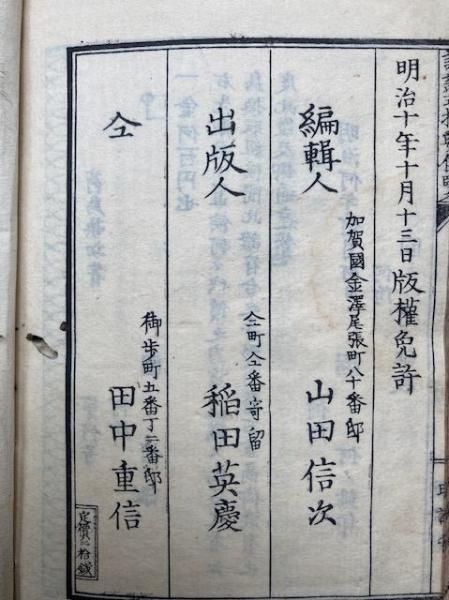 明治十年十月十三日版權免許
編輯人
加賀國金澤尾張町八十番邸
山田信次
出版人
仝町仝番寄留
稲田英慶
仝
御歩町五番丁二番邸
田中重信
定價二拾錢